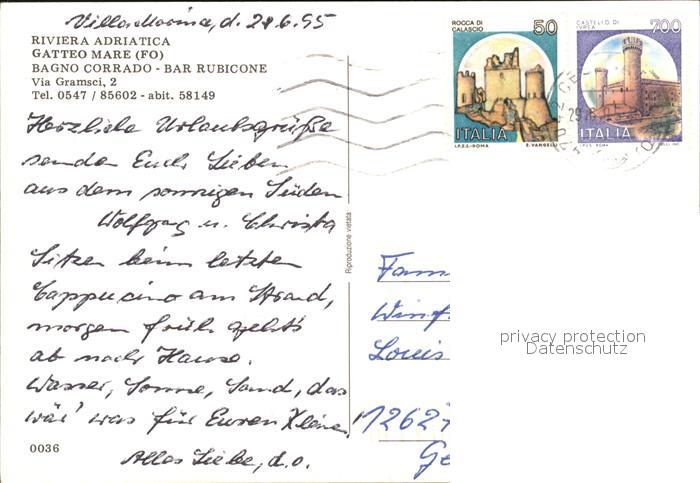 Villa Marina, d. 28.6.95
RIVIERA ADRIATICA
GATTEO MARE (FO)
BAGNO CORRADO - BAR RUBICONE
Via Gramsci, 2
Tel. 0547 / 85602 - abit. 58149
Herzliche Urlaubsgrüße
senden Euch Lieben
aus dem sonnigen Süden
Wolfgang u. Christa
Sitzen beim letzten
Cappucino am Strand,
morgen früh geht's
ab nach Hause.
Wasser, Sonne, Sand, das
wär' was für Euren Kleinen!
Alles Liebe, d.o.
0036
Riproduzione vietata
ROCCA DI
CALASCIO
50
ITALIA
I.P.Z.S.-ROMA E. VANGELLI
CASTELLO DI
IVREA
700
ITALIA
I.P.Z.S. ROMA
Fam
Winf
Louis
12627
Ge
privacy protection
Datenschutz